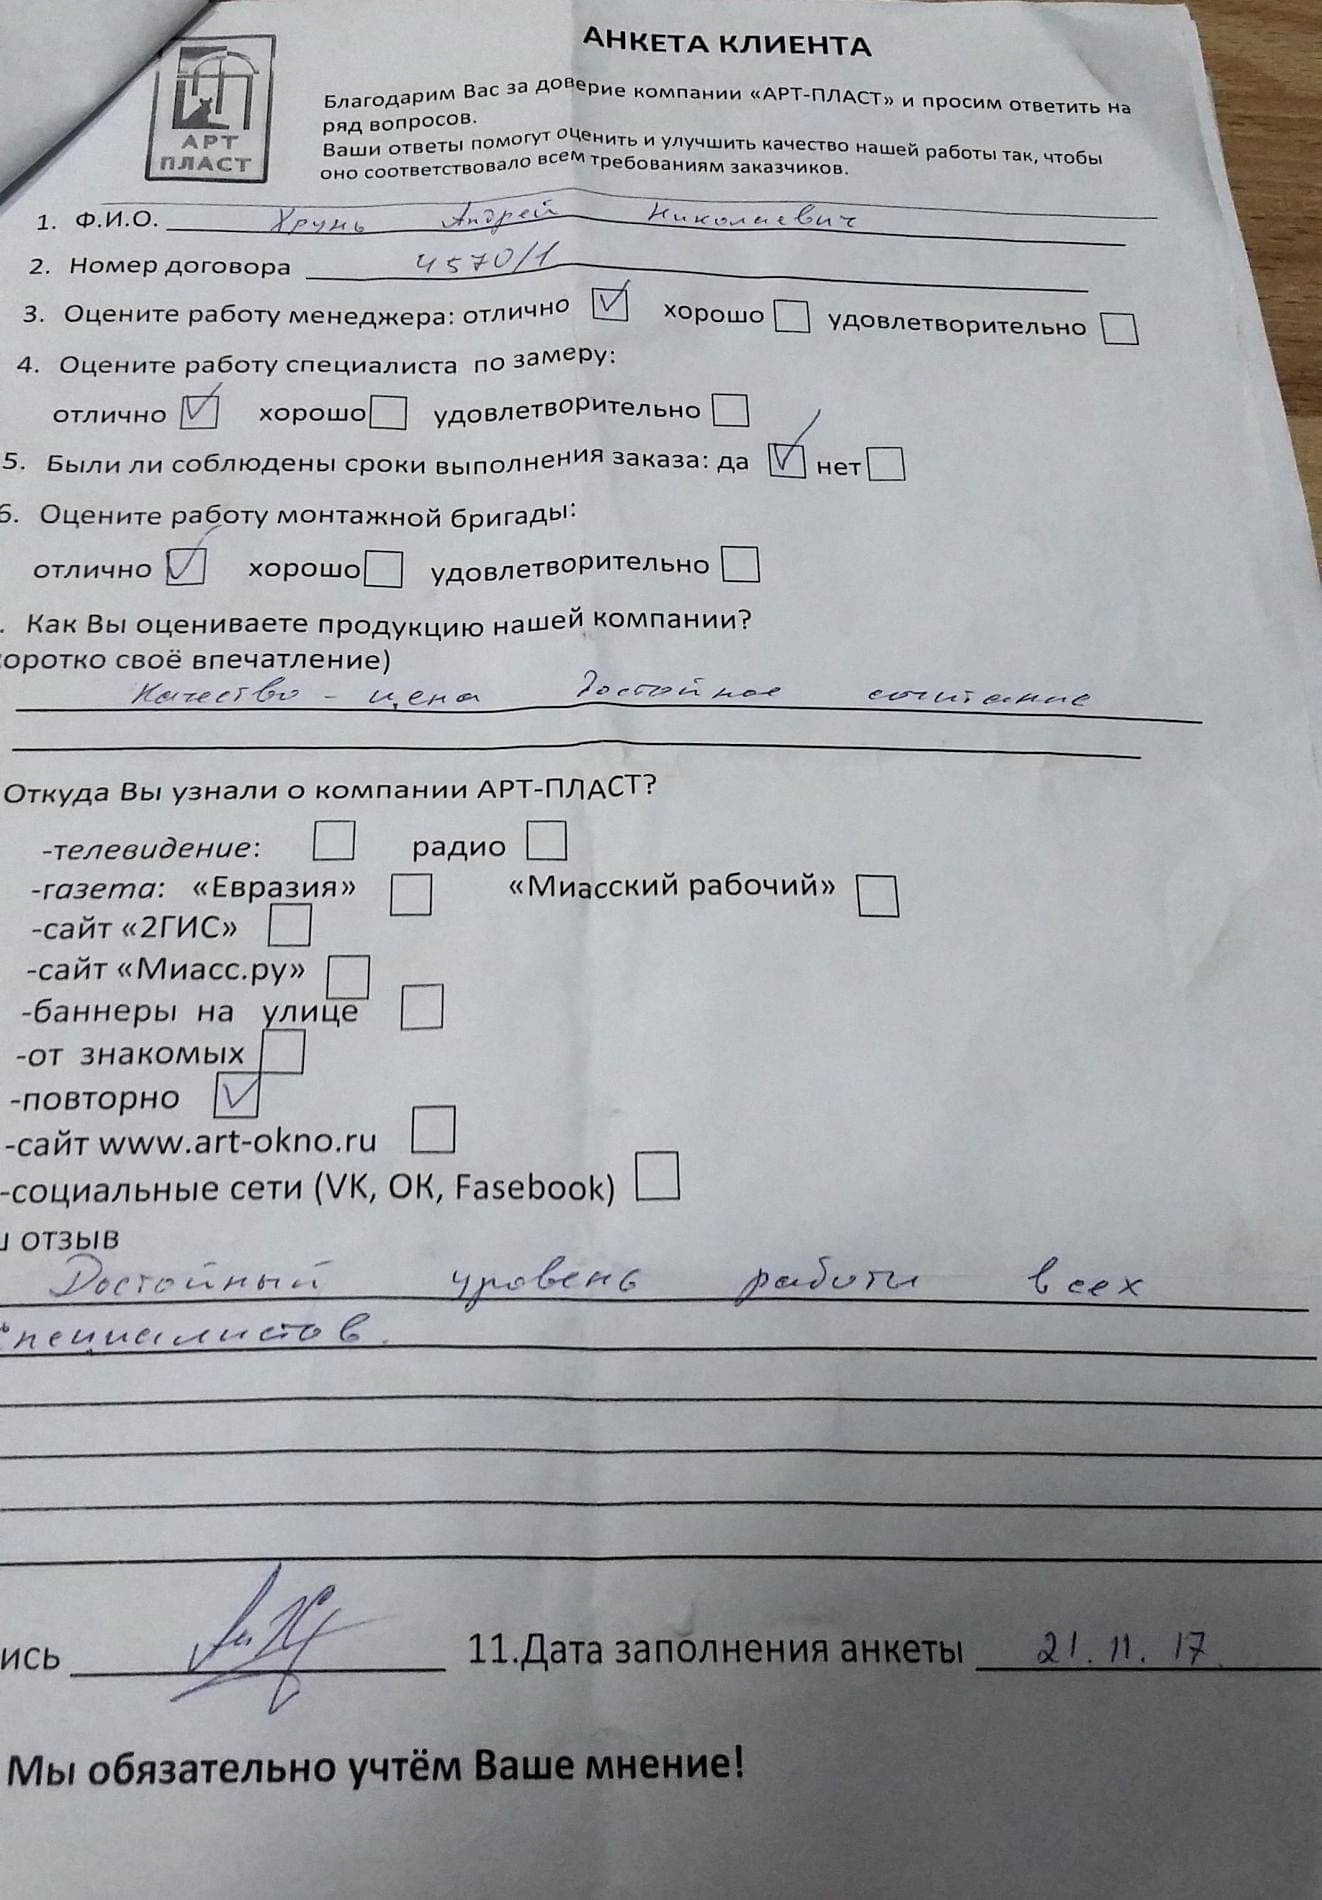 АНКЕТА КЛИЕНТА
АРТ
ПЛАСТ
Благодарим Вас за доверие компании «АРТ-ПЛАСТ» и просим ответить на
ряд вопросов.
Ваши ответы помогут оценить и улучшить качество нашей работы так, чтобы
оно соответствовало всем требованиям заказчиков.
1. Ф.И.О. Хрунь Андрей Николаевич
2. Номер договора 4570/1
3. Оцените работу менеджера: отлично хорошо удовлетворительно
4. Оцените работу специалиста по замеру:
отлично хорошо удовлетворительно
5. Были ли соблюдены сроки выполнения заказа: да нет
6. Оцените работу монтажной бригады:
отлично хорошо удовлетворительно
. Как Вы оцениваете продукцию нашей компании?
коротко своё впечатление)
Качество - цена достойное сочитание
Откуда Вы узнали о компании АРТ-ПЛАСТ?
-телевидение: радио
-газета: «Евразия» «Миасский рабочий»
-сайт «2ГИС»
-сайт «Миасс.ру»
-баннеры на улице
-от знакомых
-повторно
-сайт www.art-okno.ru
-социальные сети (VK, OK, Fasebook)
отзыв
Достойный уровень работы всех
специалистов.
ись 11.Дата заполнения анкеты 21.11.17.
Мы обязательно учтём Ваше мнение!